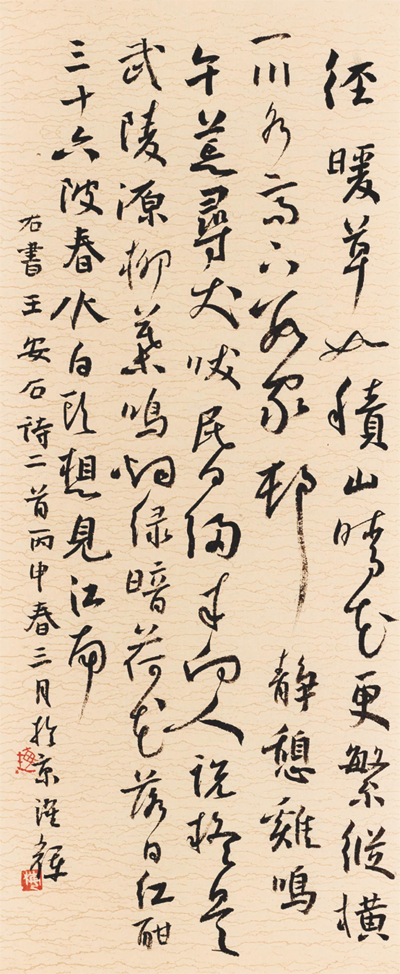 徑暖草如積山晴花更繁縱橫
一川水高下數家邨 靜憩雞鳴
午荒尋犬吠昬歸來向人說是
武陵源柳葉鳴蜩綠暗荷花落日紅酣
三十六陂春水白頭想見江南
右書王安石詩二首丙申春三月於京